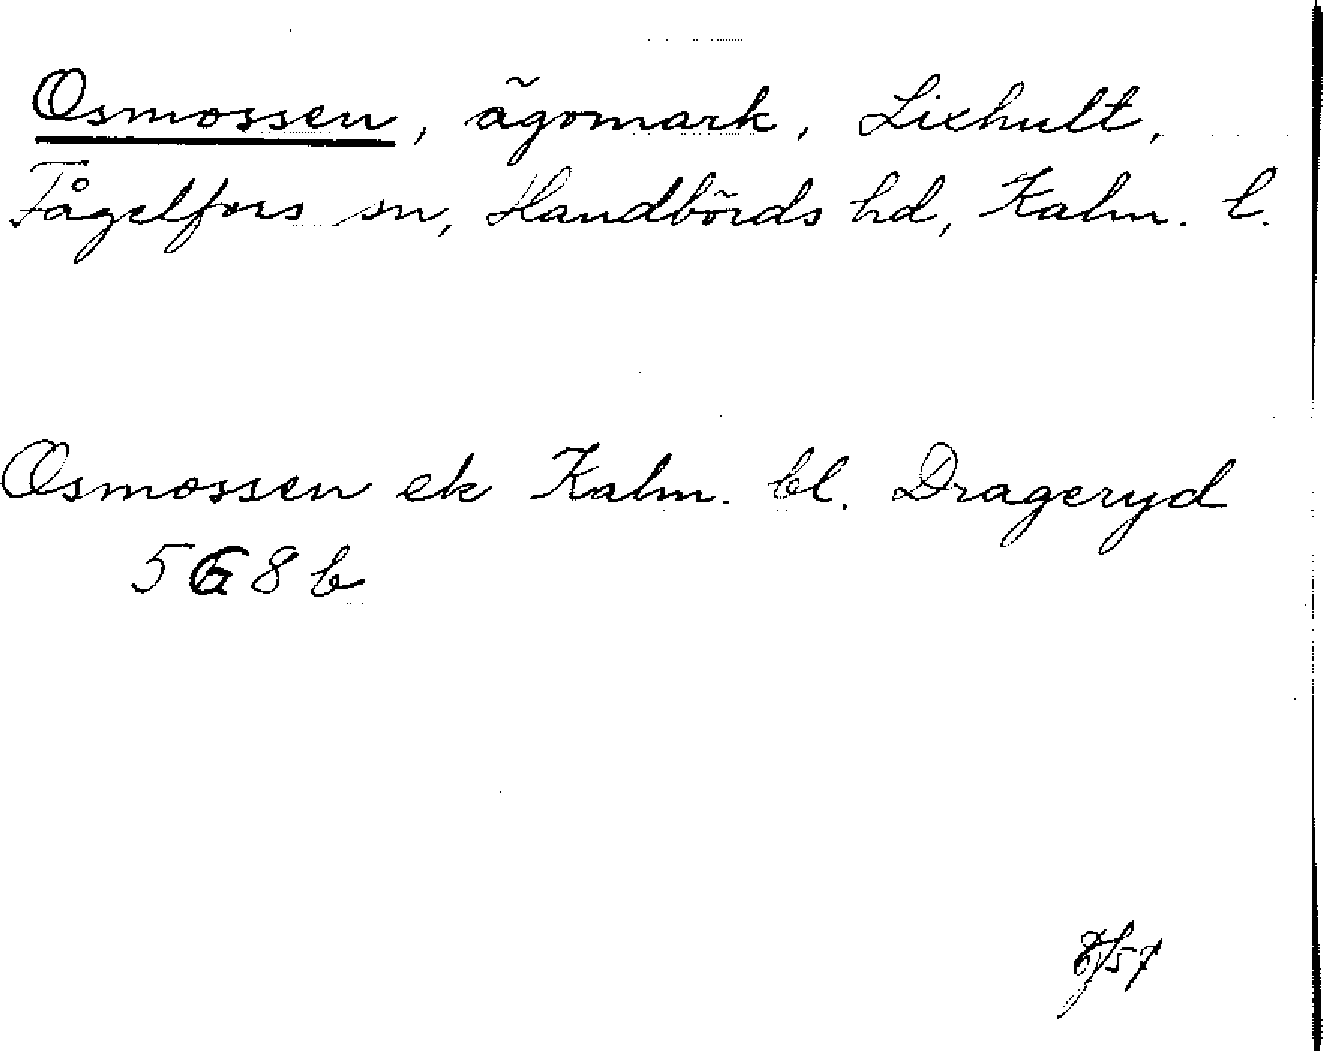 Osmossen, ägomark, Lixhult,
Fågelfors sn, Handbörds hd, Kalm. l.
Osmossen ek Kalm. bl. Drageryd
5G8b